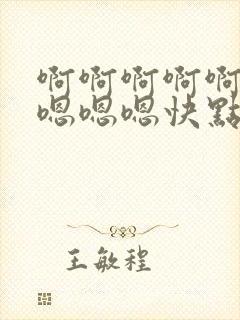 啊啊啊啊啊
嗯嗯嗯快點
王敏程